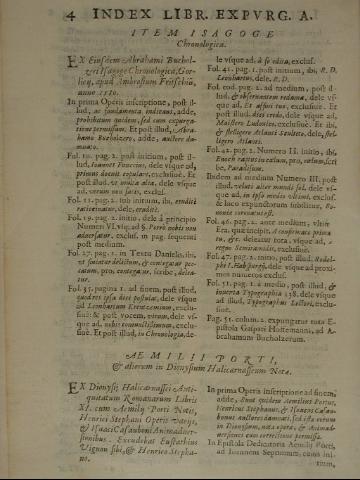 4 INDEX LIBR. EXPVRG. A.
ITEM ISAGOGE
Chronologica.
EX Eiusdem Abrahami Buchol-
zeri Isagoge Chronologica, Gor-
licij, apud Ambrosium
anno 1580.
In prima Operis inscriptione, post il-
lud, ac fundamenta indicans, adde,
probibitum quidem, sed cum expurga-
tione permissum. Et post illud, Abra-
hamo Bucholzero, adde, auctore dam-
nato.
Fol. 10. pag. 2. post initium, post il-
lud, Ioannes Functius, dele vsque ad,
primus docuit copulare, exclusiuè. Et
post illud, dele vsque
ad, verum non satis, exclus.
Fol. 11. pag. 2. sub initium, ibi, erudite
ratiocinatur, dele, erudite.
Fol. 19. pag. 2. initio, dele à principio
Numeri VI. vsq; ad §. Porrò nobis non
aduersatur, exclus. in pag. sequenti
post medium.
Fol. 27. pag. 1. in Textu Danielis, ibi,
pec-
catum, pro, scribe, delea-
tur.
Fol. 35. pagina 1. ad finem, post illud,
dele vsque
ad Lombartus exclu-
siuè: & post vocem, virum, dele vs-
que ad, exclus-
siuè. Et post illud, in Chronologia, de-
le vsque ad, à se edita, exclus.
Fol. 41. pag. 1. post initium, ibi, R. D.
Lombartus, dele, R. D.
Fol. eod. pag. 2. ad medium, post il-
lud, & obseruatione redanda, dele vs-
que ad, Et assui tus, exclusiuè. Et
post illud, dies credo, dele vsque ad,
Maistoru Ludouici, exclusiuè. Et ibi,
& stelligero Atlanti dele, stel-
ligero Atlanti.
Fol. 42. pag. 2. Numero II. initio, ibi,
Enoch raptus in cælum, pro, cælum, scri-
be, Paradisum.
Ibidem ad medium Numero III. post
illud, veluti alter mundi sol, dele vs-
que ad, in ipso medio vltimi, exclus.
& loco expunctorum subijcitur,
Fol. 46. pag. 2. ante medium, vbi
Era, quæ incipit, A confirmata prima
tu, &c. deleatur tota, vsque ad,
exclus.
Fol. 47. pag. 1. initio, post illud, Rodol-
phi I. Habspurgi, dele vsque ad proxi-
mos numeros exclus.
Fol. 51. pag. 1. à medio, post illud, &
inuenta Typographia 138. dele vsque
ad illud, Typographus Lectori, exclu-
siuè.
Pag. 51. colum. 2. expungatur tota E-
pistola Gaspari Hoffemanni, ad A-
brahamum Bucholzerum.
AEMILII PORTI,
& aliorum in Dionysium Halicarnasseum Notæ.
EX Dionysij Halicarnassei Anti-
quitatum Romanarum Libris
XI. cum Aemilij Porti Notis,
Henrici Stephani Operis varijs,
& Isaaci Casauboni Animaduer-
sionibus. Excudebat Eustathius
Vignon sibi, & Henrico Stepha-
no.
In prima Operis inscriptione ad finem,
adde, Sunt quidem Aemilius Portus,
Henricus Stephanus, & Isaacus Casau-
bonus auctores damnati, sed ista eorum
in Dionysium, nota opera, & Animad-
uersiones cum correctione permissa.
In Epistola Dedicatoria Aemilij Porti,
ad Ioannem Segninum, cum ini-
tium,